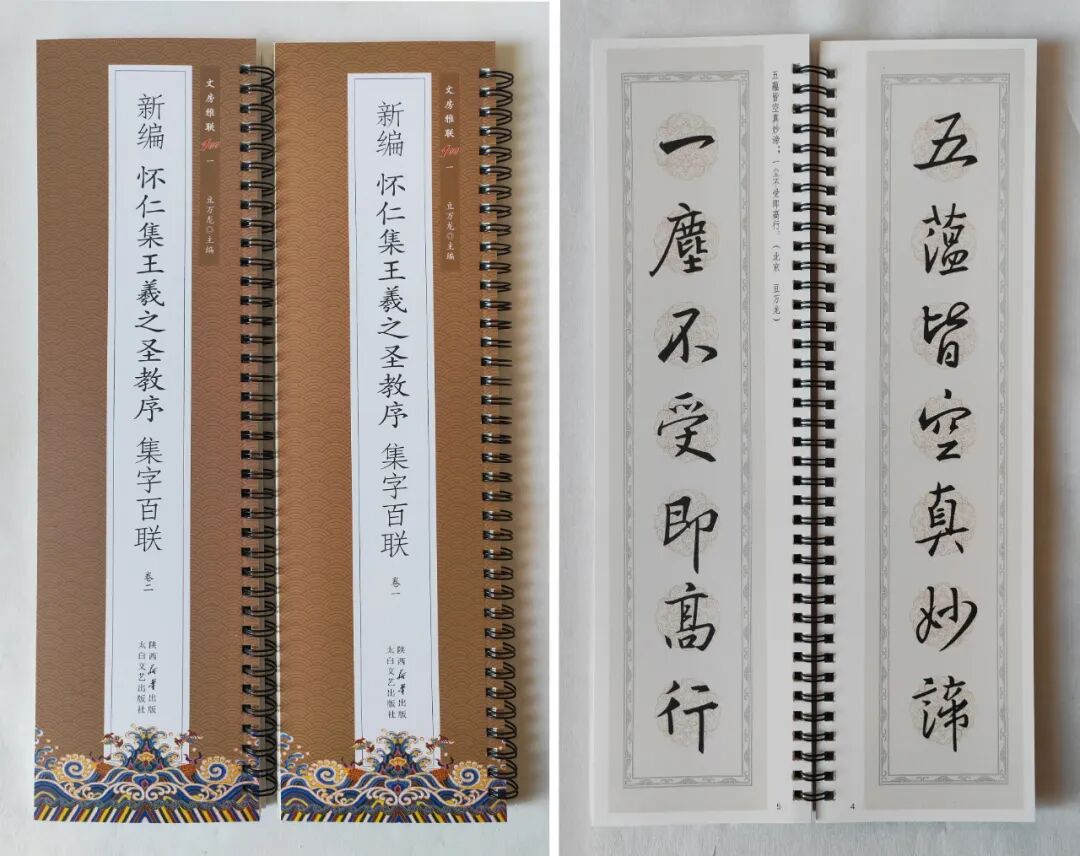 文房雅联 一
豆万龙◎主编
新编 怀仁集王羲之圣教序 集字百联
卷二
陕西新华出版
太白文艺出版社
文房雅联 一
豆万龙◎主编
新编 怀仁集王羲之圣教序 集字百联
卷一
陕西新华出版
太白文艺出版社
五薀皆空真妙諦
4
五蘊皆空真妙谛；一尘不受即高行。（北京 豆万龙）
一塵不受即高行
5